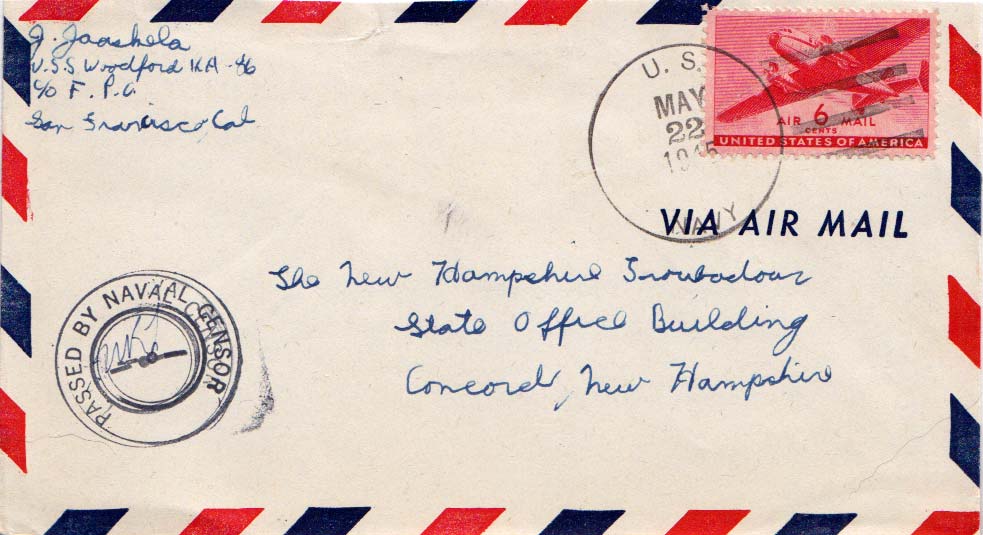 J. Jaashela
U.S.S Woodford KA-86
c/o F.P.O.
San Francisco, Cal
U. S.
MAY
22
1945
NAVY
AIR 6 MAIL
CENTS
UNITED STATES OF AMERICA
VIA AIR MAIL
The New Hampshire Troubadour
State Office Building
Concord, New Hampshire
PASSED BY NAVAL CENSOR